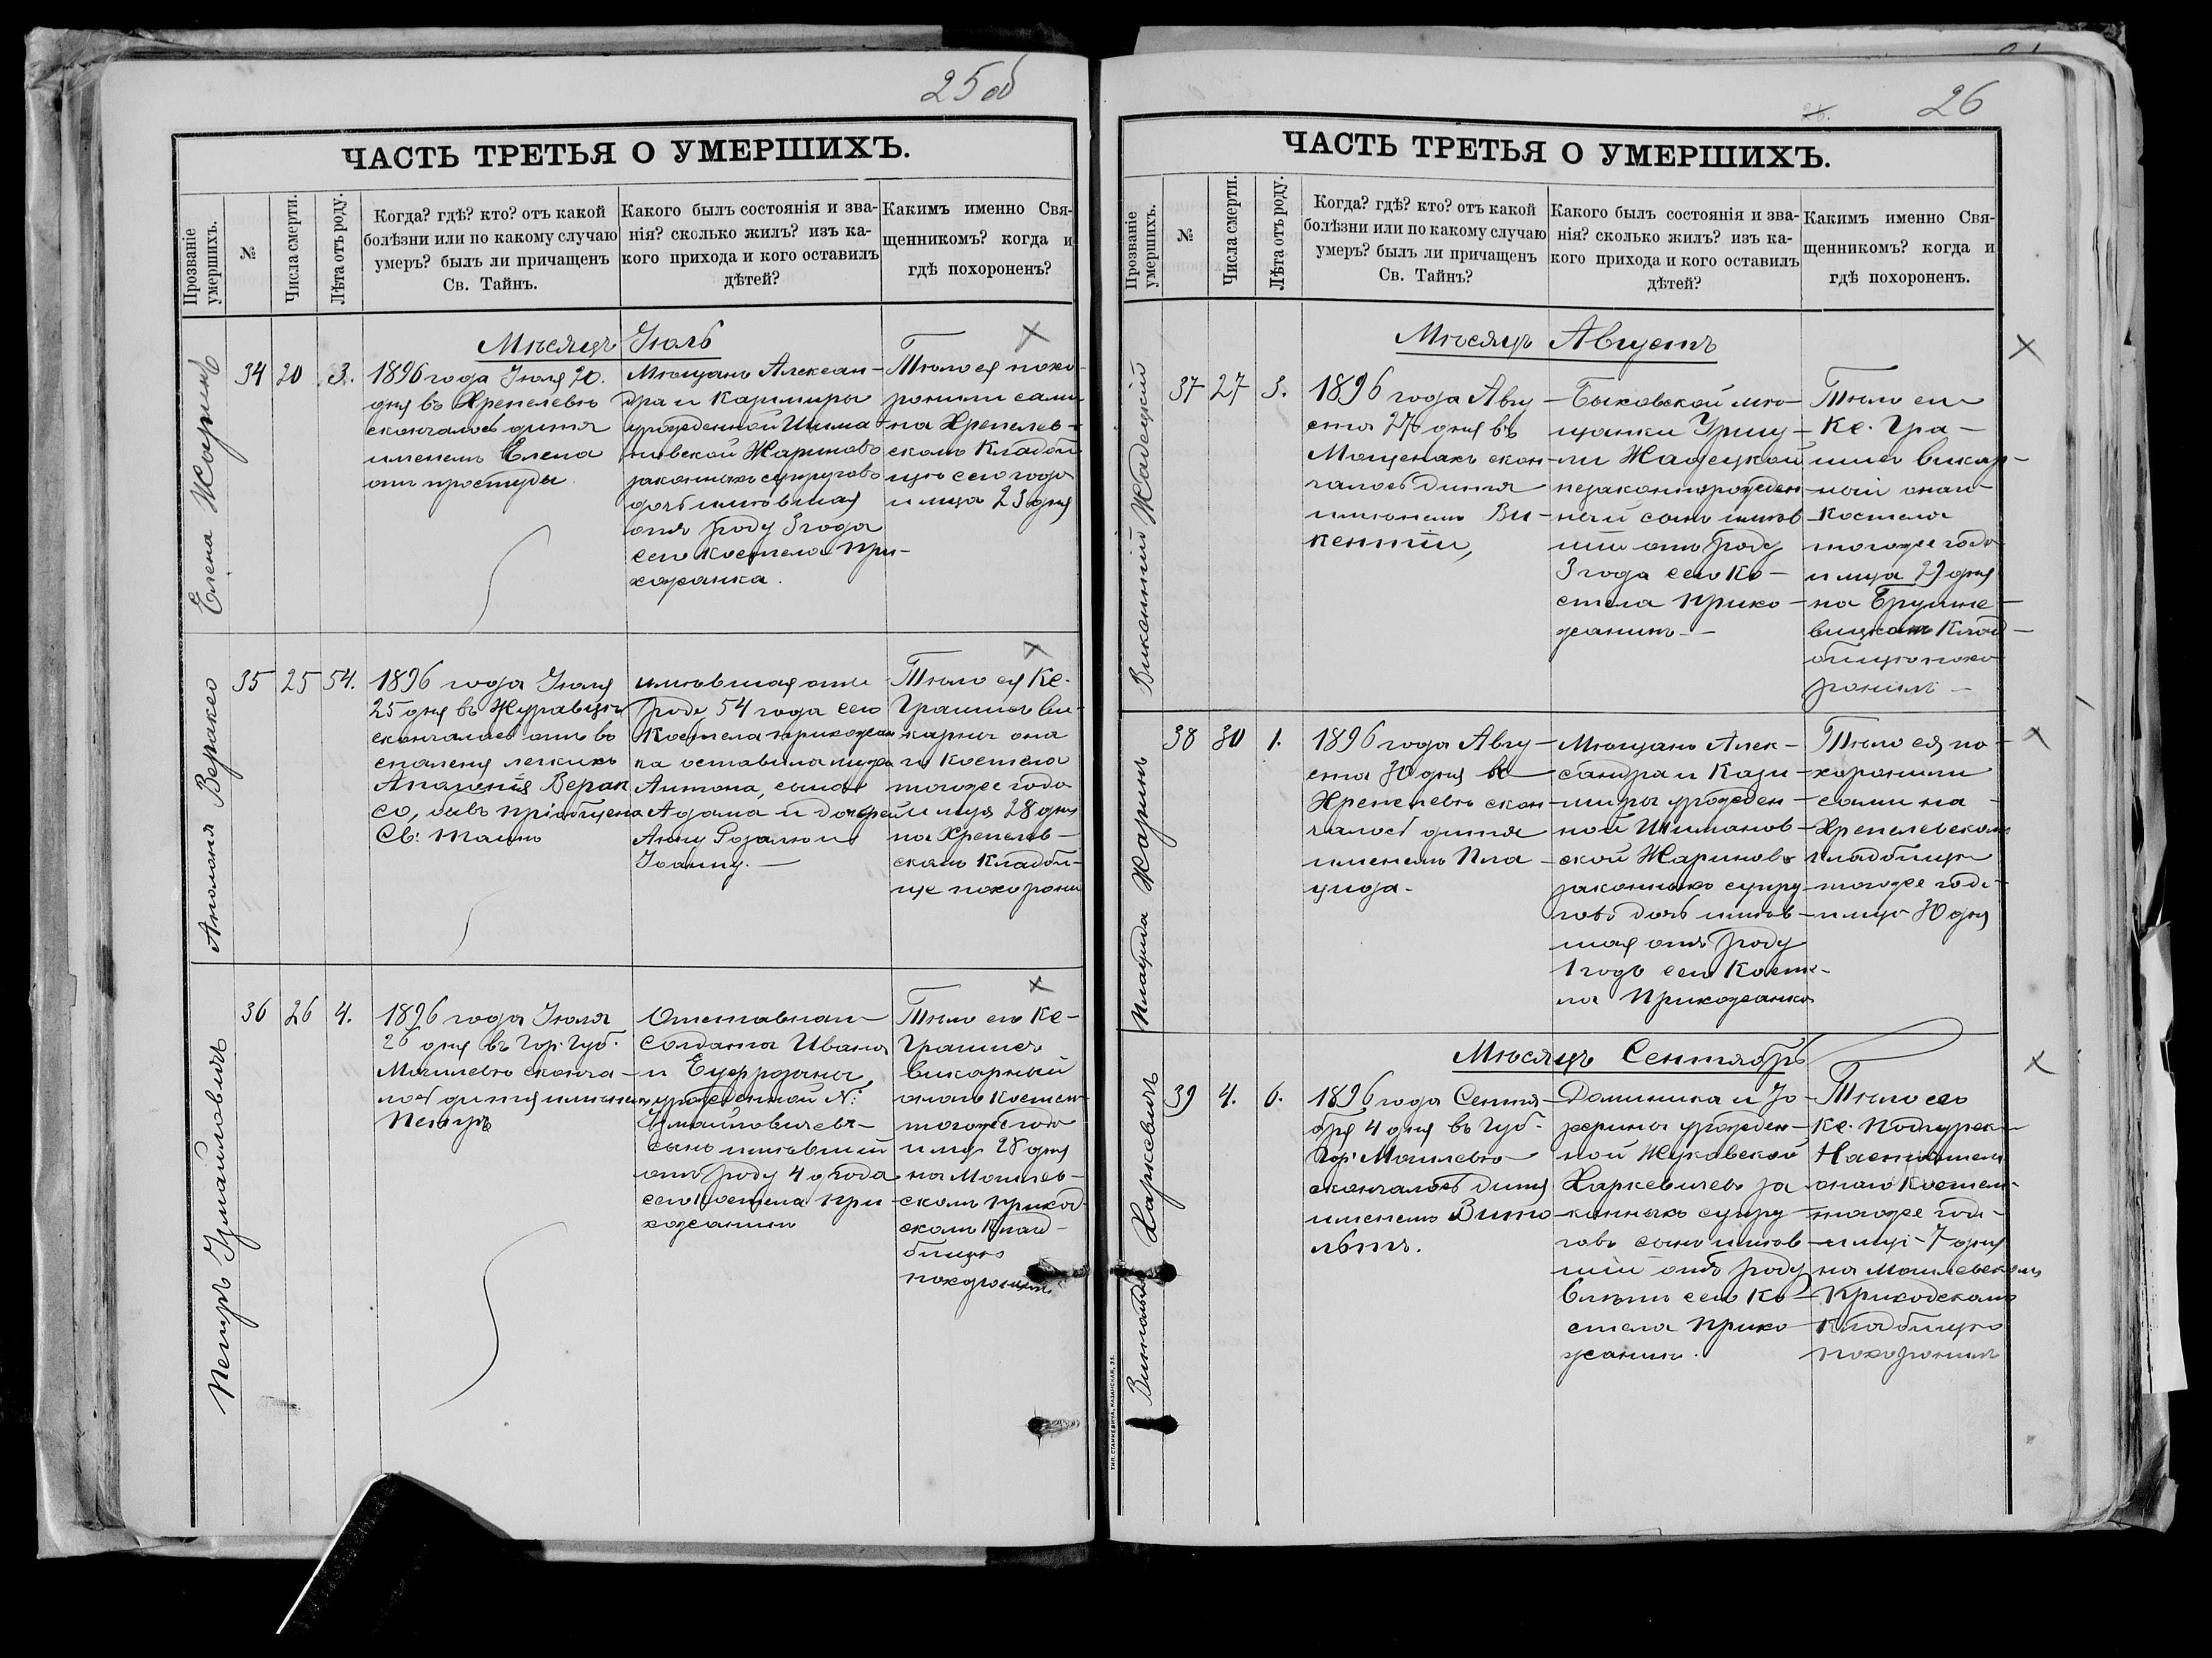 25 об
ЧАСТЬ ТРЕТЬЯ О УМЕРШИХЪ.
Прозваніе
умершихъ.
№
Числа смерти.
Лѣта отъ роду.
Когда? гдѣ? кто? отъ какой
болѣзни или по какому случаю
умеръ? былъ ли причащенъ
Св. Тайнъ.
Какого былъ состоянія и зва-
нія? сколько жилъ? изъ ка-
кого прихода и кого оставилъ
дѣтей?
Какимъ именно Свя-
щенникомъ? когда и
гдѣ похороненъ?
Мѣсяцъ Іюль
Елена Жаринъ
34
20
3.
1896 года Іюля 20.
дня въ Хрепелевѣ
скончалось дитя
именемъ Елена
отъ простуды
Мѣщанъ Алексан-
дра и Казимиры
урожденной Шима
новской Жариновъ
законныхъ супруговъ
дочь имѣвшая
отъ роду 3 года
сего костела при-
хожанка.
Тѣло ея похо-
ронили сами
на Хрепелев-
скомъ кладби
щѣ сего года
и м-ца 23 дня
Аполонія Веракso
35
25
54.
1896 года Іюля
25 дня въ Журавцѣ
скончалась отъ во
спаленія легкихъ
Аполонія Верак
со, бывъ пріобщена
Св: Таинъ
имѣвшая отъ
роду 54 года сего
Костела прихожан
ка оставила мужа
Антона, сына
Адама и дочерей
Анну Розалію и
Іоанну.
Тѣло ея Кс.
Граписъ ви-
карный она
го Костела
тогоже года
и м-ца 28 дня
на Хрепелев-
скомъ кладби-
щѣ похорони
Петръ Измайловичъ
36
26
4.
1896 года Іюля
26 дня въ гор. Губ.
Могилевѣ сконча-
лось дитя именемъ
Петръ
Отставнаго
Солдата Ивана
и Ефрозины
урожденной N:
Измайловичевъ
сынъ имѣвшій
отъ роду 4 года
сего костела при
хожанинъ
Тѣло его Кс-
Граписъ
викарный
онаго Костел-
тогоже года
и м-ца 28 дня
на Могилев-
скомъ приход
скомъ клад-
бищѣ
похоронилъ
ТИП. СТАНКЕВИЧА, КАЗАНСКАЯ, 31.
26
ЧАСТЬ ТРЕТЬЯ О УМЕРШИХЪ.
Прозваніе
умершихъ.
№
Числа смерти.
Лѣта отъ роду.
Когда? гдѣ? кто? отъ какой
болѣзни или по какому случаю
умеръ? былъ ли причащенъ
Св. Тайнъ?
Какого былъ состоянія и зва-
нія? сколько жилъ? изъ ка-
кого прихода и кого оставилъ
дѣтей?
Какимъ именно Свя-
щенникомъ? когда и
гдѣ похороненъ.
Мѣсяцъ Августъ
Викентій Жадецкій
37
27
3.
1896 года Авгу
ста 27 дня въ
скон
чалось дитя
именемъ Ви-
кентій,
Быховской мѣ-
щанки Уршу-
ли Жадецкой
незаконнорожден
ный сынъ имѣв
шій отъ роду
3 года сего Ко-
стела прихо-
жанинъ
Тѣло его
Кс. Гра-
писъ викар-
ный онаго
Костела
тогоже года
и м-ца 29 дня
на
Клад-
бищѣ похо
ронилъ
Плацида Жаринъ
38
30
1.
1896 года Авгу-
ста 30 дня въ
Хрепелевѣ скон
чалось дитя
именемъ Пла
цида.
Мѣщанъ Алек-
сандра и Кази-
миры урожден-
ной Шиманов-
ской Жариновъ
законныхъ супру-
говъ дочь имѣв-
шая отъ роду
1 годъ сего Косте-
ла прихожанка
Тѣло ея по-
хоронили
сами на
Хрепелевскомъ
кладбищѣ
тогоже года
и м-ца 30 дня
Мѣсяцъ Сентябрь
Витольдъ Харкевичъ
39
4.
6.
1896 года Сентя-
бря 4 дня въ Губ-
Гор: Могилевѣ
скончалось дитя
именемъ Вито
льдъ.
Доминика и Іо
зефины урожден-
ной Жуковской
Харкевичевъ за
конныхъ супру
говъ сынъ имѣв
шій отъ роду
6 лѣтъ сего Ко-
стела прихо
жанинъ.
Тѣло его
Кс.
Настоятель
онаго Костела
тогоже года
и м-ца 7 дня
на Могилевскомъ
Приходскомъ
Кладбищѣ
похоронилъ